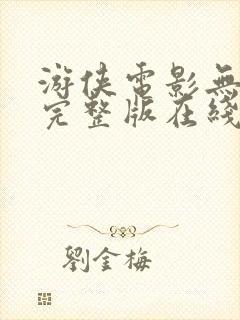 游侠電影無
完整版在綫
劉金梅